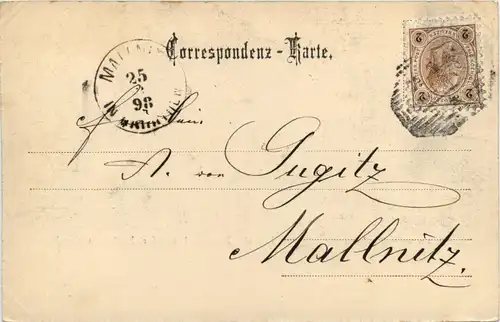 Correspondenz-Karte.
MALLNITZ
25
98
2 2
2 2
A. von Gugitz
Mallnitz.